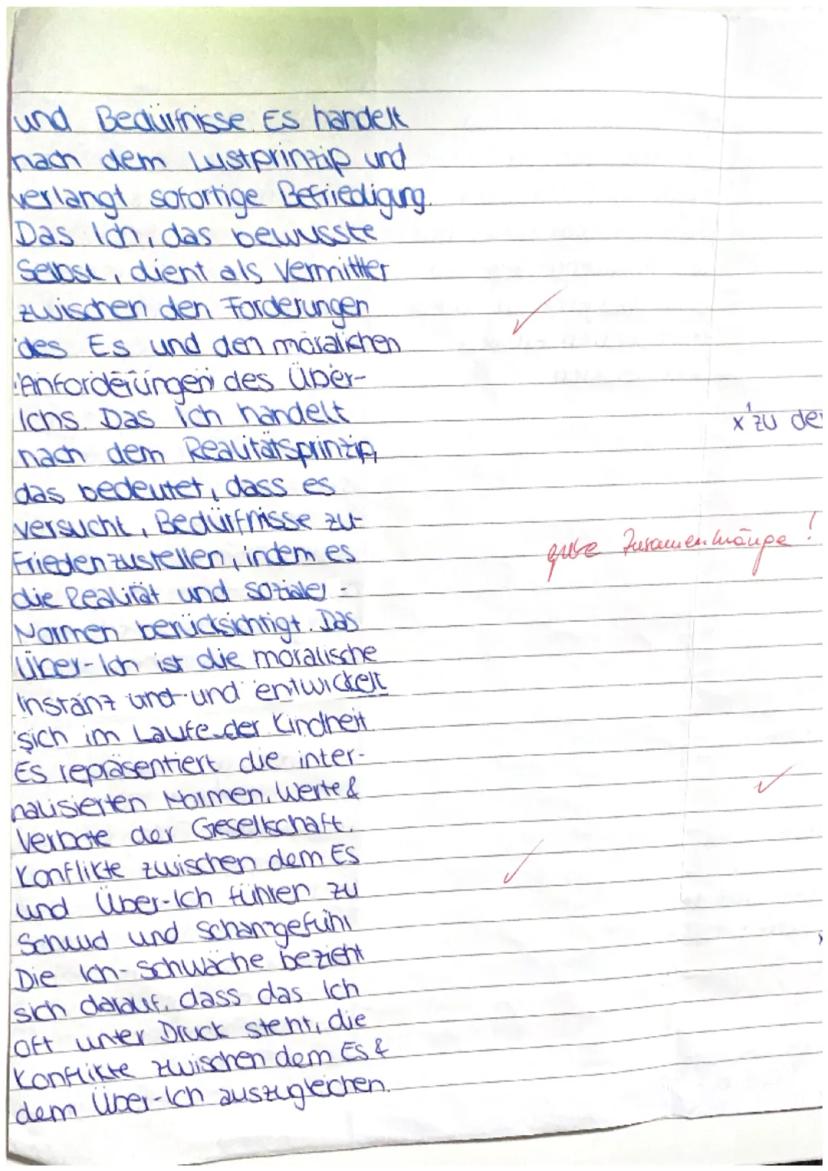 und Bedürfnisse. Es handelt
nach dem Lustprinzip und
verlangt sofortige Befriedigung.
Das Ich, das bewusste
Selbst, dient als Vermittler
zwischen den Forderungen
des Es und den moralichen
Anforderungen des Über-
Ichs. Das Ich handelt
x¹ zu de
nach dem Realitätsprinzip,
das bedeutet, dass es
versucht, Bedürfnisse zu-
frieden zustellen, indem es
gute Zusamenhänge!
die Realität und soziale -
Normen berücksichtigt. Das
Über-Ich ist die moralische
Instanz und und entwickelt
sich im Laufe der Kindheit
Es repräsentiert die inter-
nalisierten Normen, Werte &
Verbote der Gesellschaft.
Konflikte zwischen dem Es
und Über-Ich führen zu
Schuld und Schamgefühl
Die Ich-Schwäche bezieht
sich darauf, dass das Ich
oft unter Druck steht, die
Konflikte zwischen dem Es &
dem Über-Ich auszugleichen.